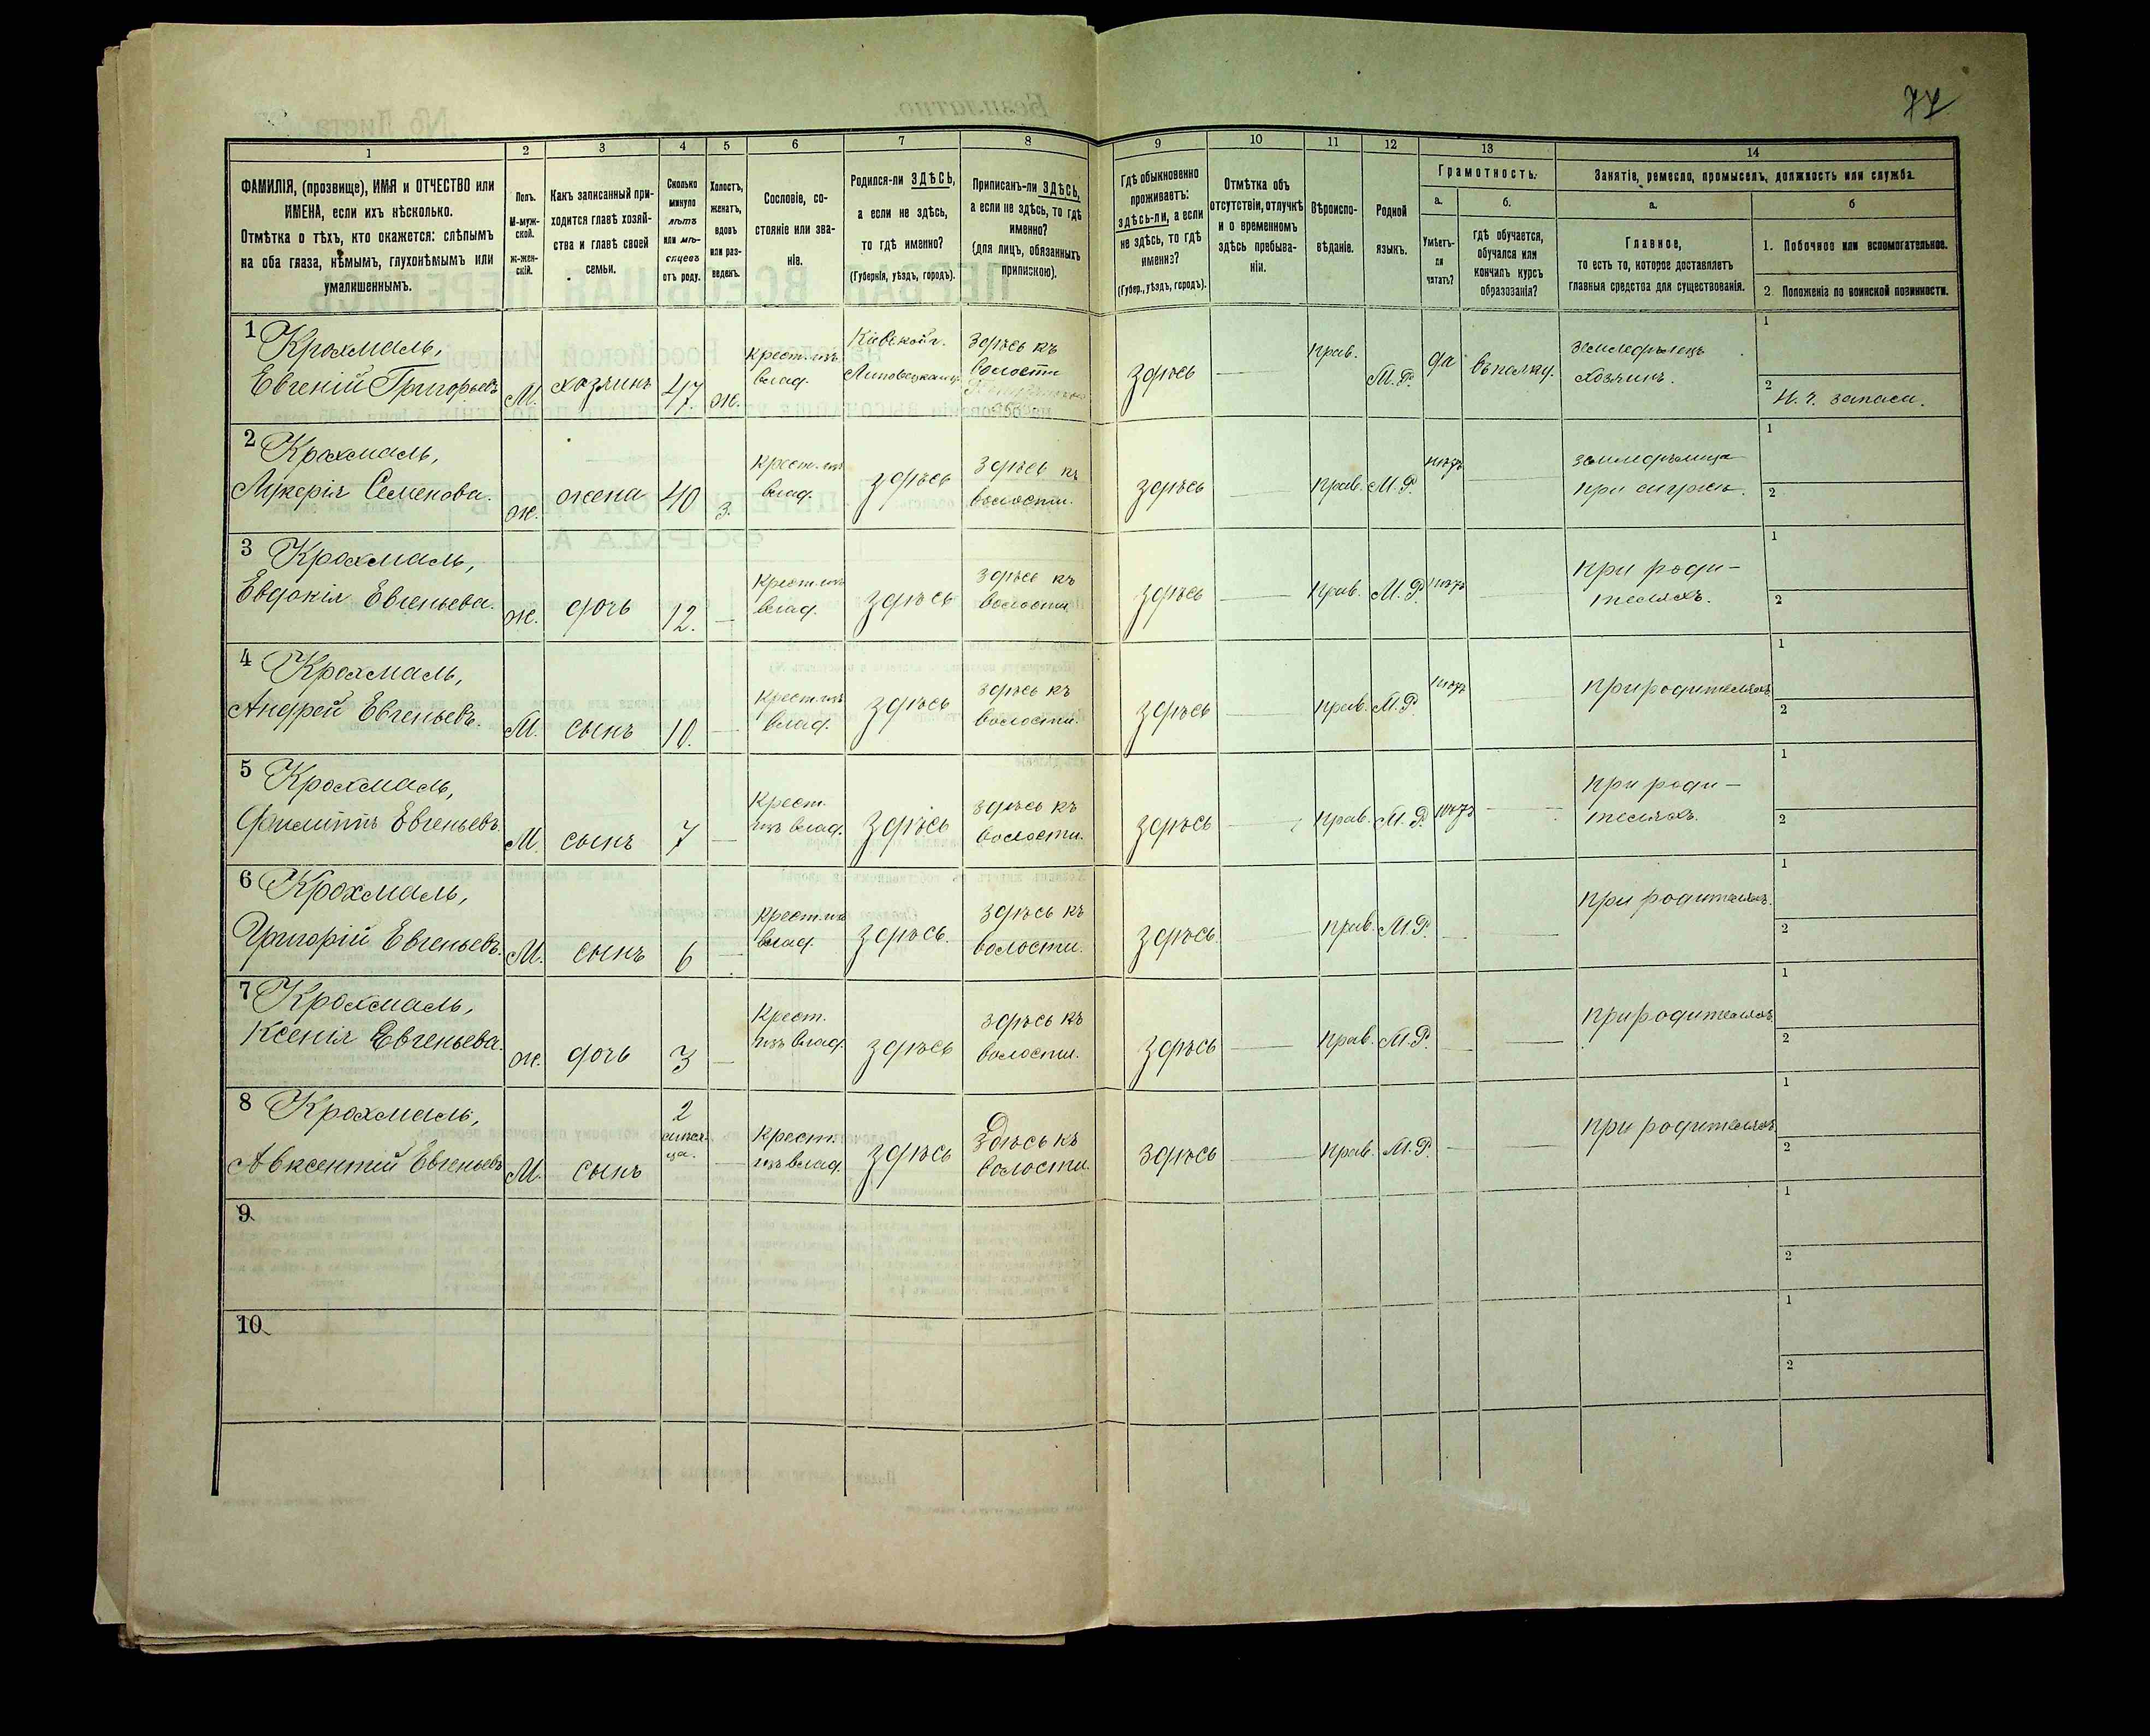 74
1 2 3 4 5 6 7 8 9 10 11 12 13 14
ФАМИЛІЯ, (прозвище), ИМЯ и ОТЧЕСТВО или
ИМЕНА, если ихъ нѣсколько.
Отмѣтка о тѣхъ, кто окажется: слѣпымъ
на оба глаза, нѣмымъ, глухонѣмымъ или
умалишеннымъ.
Полъ.
М-муж-
ской.
Ж-жен-
скій.
Какъ записанный при-
ходится главѣ хозяй-
ства и главѣ своей
семьи.
Сколько
минуло
лѣтъ
или мѣ-
сяцевъ
отъ роду.
Холостъ,
женатъ,
вдовъ
или раз-
веденъ.
Сословіе, со-
стояніе или зва-
ніе.
Родился-ли ЗДѢСЬ,
а если не здѣсь,
то гдѣ именно?
(Губернія, уѣздъ, городъ).
Приписанъ-ли ЗДѢСЬ,
а если не здѣсь, то гдѣ
именно?
(для лицъ, обязанныхъ
припискою).
Гдѣ обыкновенно
проживаетъ:
здѣсь-ли, а если
не здѣсь, то гдѣ
именно?
(Губер., уѣздъ, городъ).
Отмѣтка объ
отсутствіи, отлучкѣ
и о временномъ
здѣсь пребыва-
ніи.
Вѣроиспо-
вѣданіе.
Родной
языкъ.
Грамотность.
а.
Умѣетъ-
ли
читать?
б.
гдѣ обучается,
обучался или
кончилъ курсъ
образованія?
Занятіе, ремесло, промыселъ, должность или служба.
а.
Главное,
то есть то, которое доставляетъ
главныя средства для существованія.
б
1. Побочное или вспомогательное.
2. Положеніе по воинской повинности.
1 Крохмаль,
Евгеній Григорьевъ
М. хозяинъ 47 ж.
Крест. изъ
влад.
Кіевской г.
Липовецкаго у.
здѣсь къ
волости
здѣсь прав. М. Р. да
земледѣлецъ
хозяинъ.
1
2 Н. ч. запаси.
2 Крохмаль,
Лукерія Семенова.
ж. жена 40 з.
крест. изъ
влад.
здѣсь
здѣсь къ
волости.
здѣсь прав. М. Р. нѣтъ
земледѣлица
при мужѣ.
1
2
3 Крохмаль,
Евдокія Евгеньева.
ж. дочь 12.
крест. изъ
влад.
здѣсь
здѣсь къ
волости
здѣсь прав. М. Р. нѣтъ
при роди-
теляхъ.
1
2
4 Крохмаль,
Андрей Евгеньевъ.
М. сынъ 10.
крест. изъ
влад.
здѣсь
здѣсь къ
волости.
здѣсь прав. М. Р. нѣтъ
при родителяхъ
1
2
5 Крохмаль,
Филиппъ Евгеньевъ
М. сынъ 7
Крест.
изъ влад.
здѣсь
здѣсь къ
волости.
здѣсь прав. М. Р. нѣтъ
при роди-
теляхъ.
1
2
6 Крохмаль,
Григорій Евгеньевъ.
М. сынъ 6
крест. изъ
влад.
здѣсь.
здѣсь къ
волости.
здѣсь. прав. М. Р.
при родителяхъ.
1
2
7 Крохмаль,
Ксенія Евгеньева.
ж. дочь 3
Крест.
изъ влад.
здѣсь
здѣсь къ
волости.
здѣсь прав. М. Р.
при родителяхъ
1
2
8 Крохмаль,
Авксентий Евгеньевъ
М. сынъ
2
мѣся-
ца.
Крест.
изъ влад.
здѣсь
здѣсь къ
волости.
здѣсь прав. М. Р.
при родителяхъ
1
2
9
1
2
10
1
2